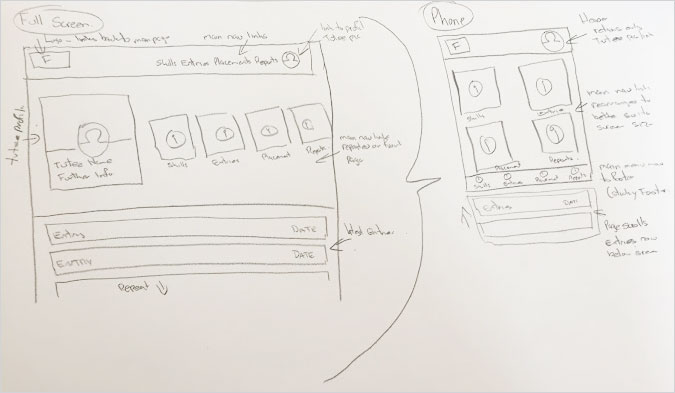 Full Screen
Logo - takes back to main page
main nav links
link to profil
Tutee pic
F
Skills Entries Placements Reports
tutee profile
Tutee Name
Further Info
1
1
1
1
Skills
Entries
Placement
Reports
main nav links
repeated on front
Page
Entry
DATE
ENTRY
DATE
latest Entries
REPEAT
Phone
F
Tutee
1
1
1
Skills
Entries
Placement
Reports
main nav link
rearranged to
better suits
screen size
Skills
Entries
Placement
Reports
main menu nav
to footer
(sticky Footer)
Entries
DATE
Page scrolls
Entries now
below screen